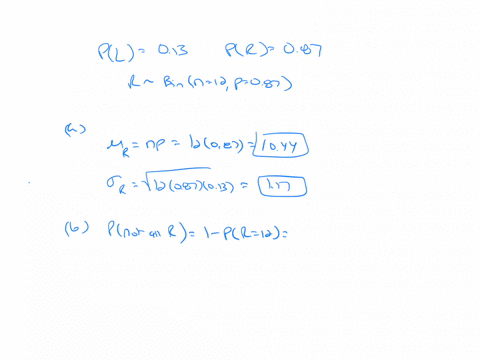 P(L) = 0.13 P(R) = 0.87
R ~ Bin(n=12, p=0.87)
(a)
μ_R = np = 12(0.87) = 10.44
σ_R = √12(0.87)(0.13) = 1.17
(b) P(not all R) = 1 - P(R=12) =